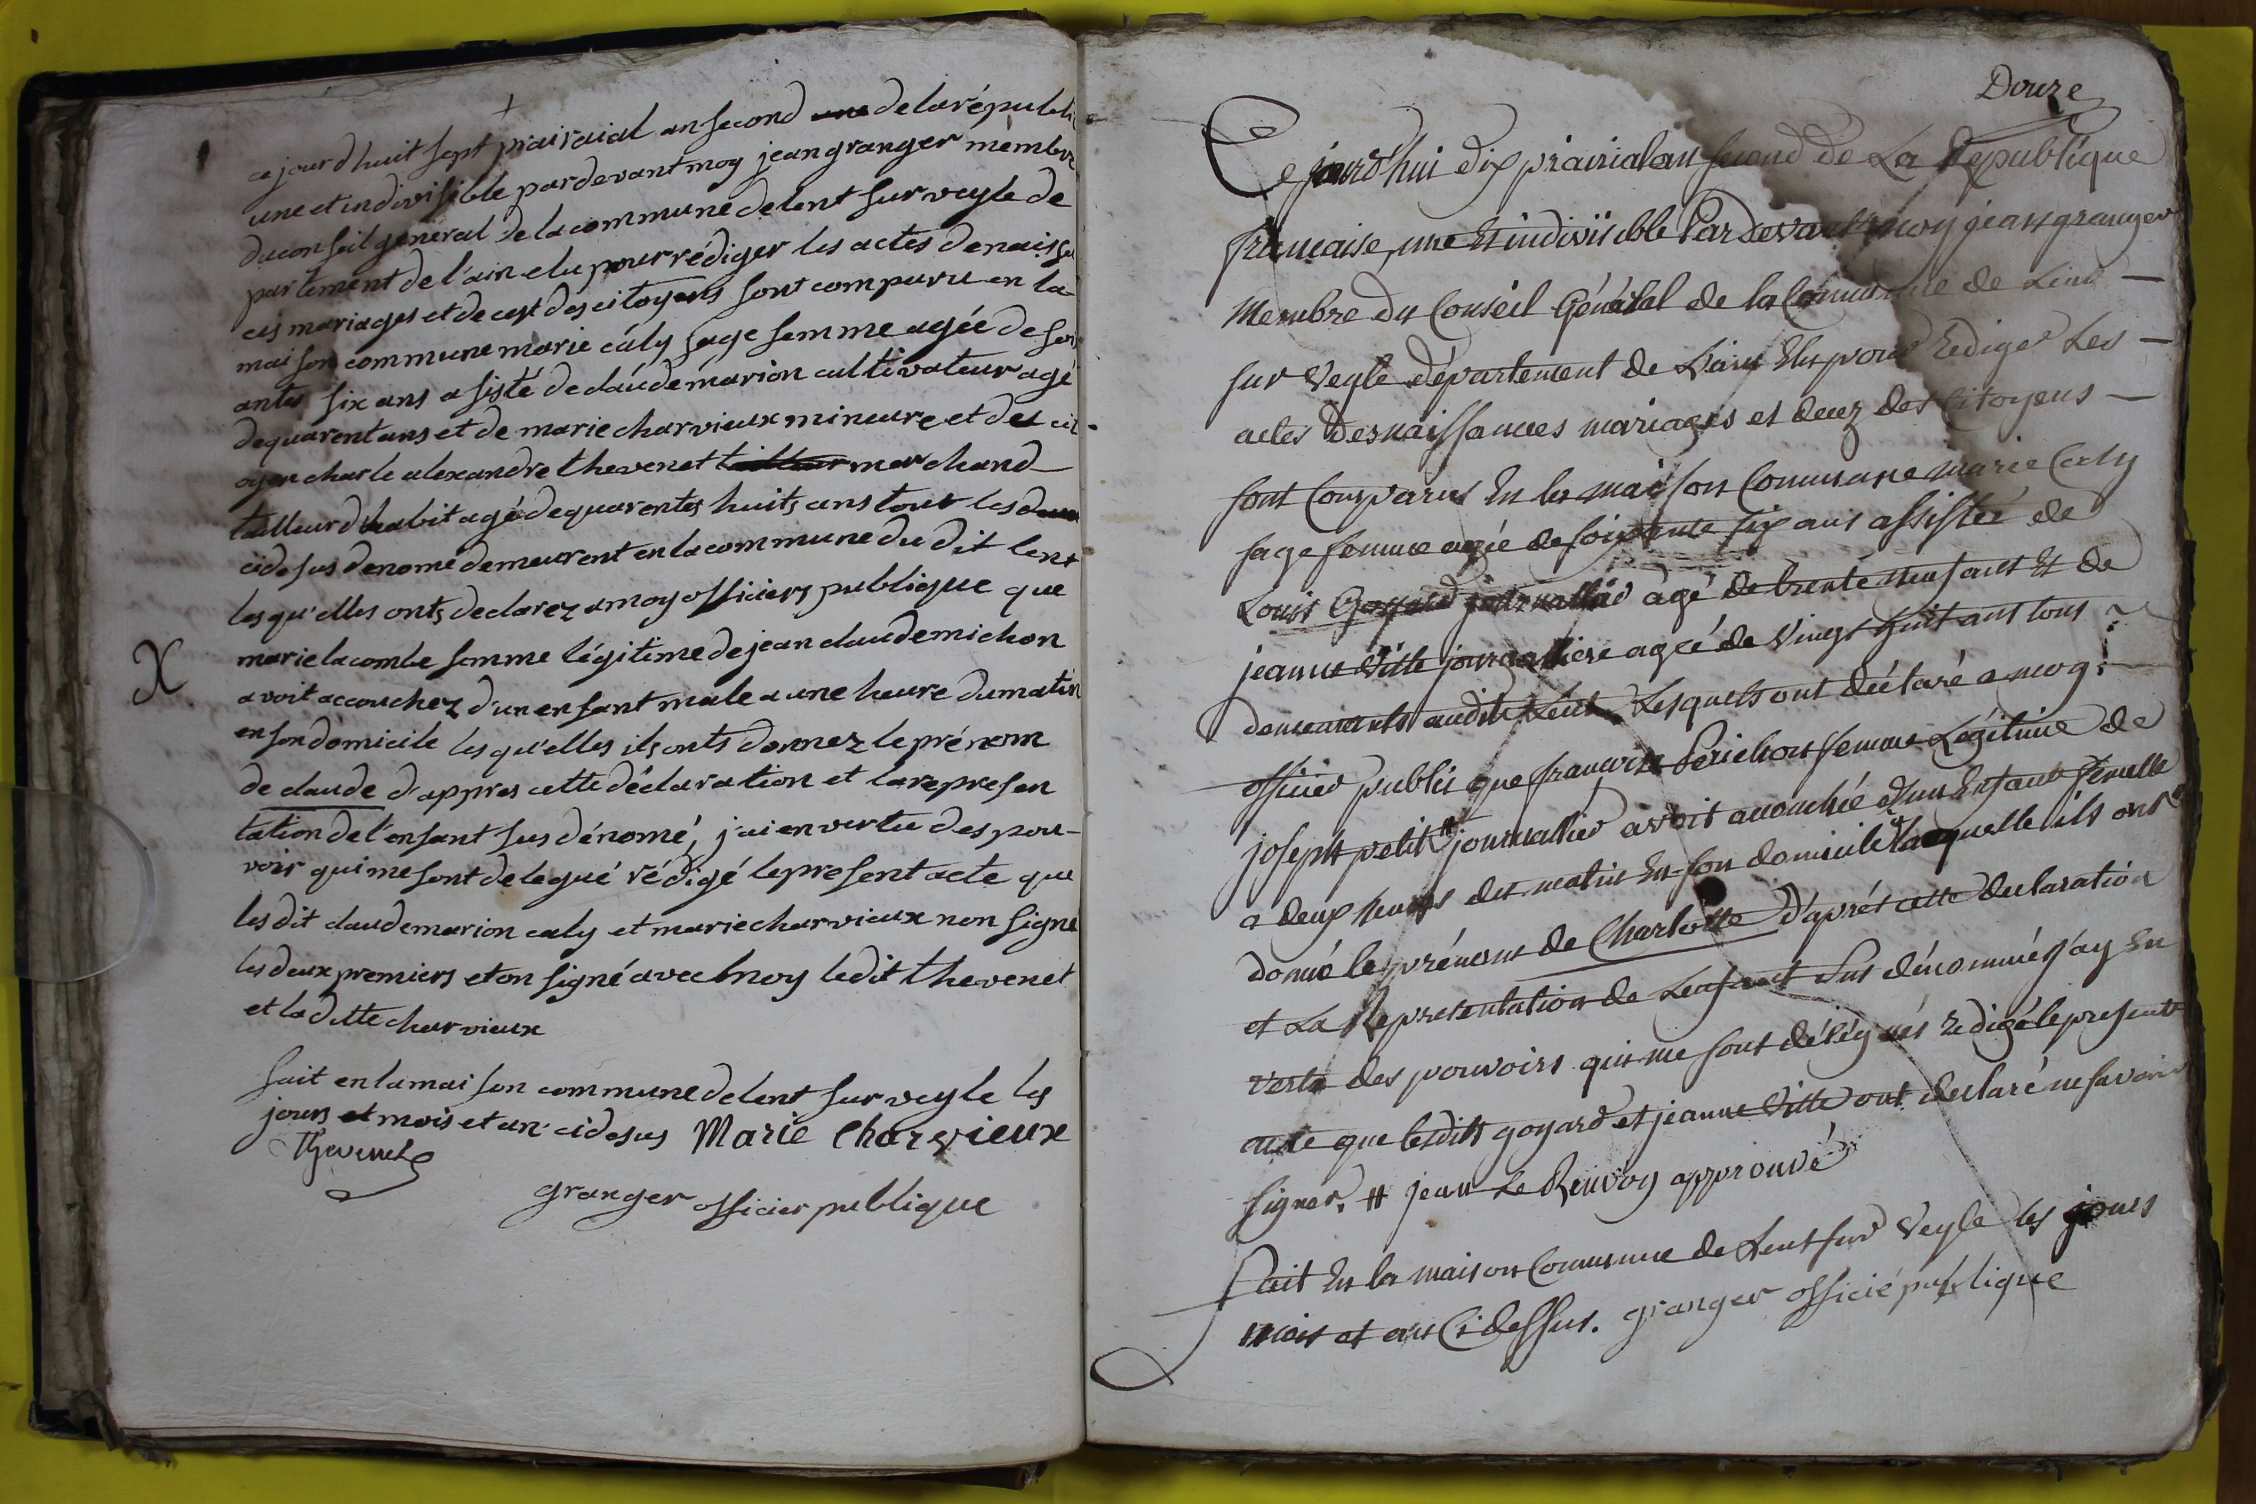 ce jourd huit sept prairaial an second une de la républi
une et indivisible pardevant moy jean granger membre
du conseil general de la commune de lent sur veyle de
partement de l'ain elu pour rédiger les actes de naissen
ces mariages et de cest des citoyens sont comparu en la
maison commune marie câly sage femme agée de soi
antes six ans asisté de claude marion cultivateur agé
de quarent ans et de marie charvieux mineure et des cit
oyen charle alexandre thevenet tailleur marchand
tailleur dhabit agé de quarentes huits ans tout les deux
ci desus denomé demeurent en la commune du dit lent
les qu'elles onts declarez a moy officiers publique que
X marie lacombe femme légitime de jean claude michon
avoit accouchez d'un enfant male a une heure du matin
en son domicile les qu'elles ils onts donnez le prénom
de claude d'appres cette déclaration et la represen
tation de l'enfant sus dénomé, j'ai en vertu des pou-
voir qui me sont delegué rédigé le present acte que
les dit claude marion caly et marie charvieux non signé
les deux premiers et on signé avec moy le dit thevenet
et la ditte charvieux
fait en la maison commune de lent sur veyle les
jours et mois et an ci desus Marie Charvieux
Thevenet
granger officier publique
Douze
Ce jourd'hui dix prairial an second de La Republique
francaise, une et indivisible Par devant moy jean granger
Membre du Conseil Général de la Commune de Lent
sur Veyle département de L'ain Elu pour Rediger Les
actes des naissances mariages et decez des Citoyens
sont Comparus En la maison Commune marie Caly
sage femme agée de soixante six ans assistée de
Louis Goyard journallier agé de trente neuf ans Et de
jeanne Ville journalliere agée de Vingt huit ans tous
demeurants audit Lent, Lesquels ont déclaré a moy
officier public que françoise Perichon femme Légitime de
joseph petit # journallier avoit accouchée d'un Enfant femelle
a deux heures du matin En son domicile laquelle ils ont
donné le prénom de Charlotte D'aprés cette declaration
et La Representation de Lenfant Sus dénommé j'ay En
vertu des pouvoirs qui me sont délégués redigé le present
acte que lesdits goyard et jeanne Ville ont declaré ne savoir
signer. # jean Le Renvoy approuvé
Fait En la maison Commune de Lent sur Veyle les jours
mois et an Ci dessus. granger officié publique